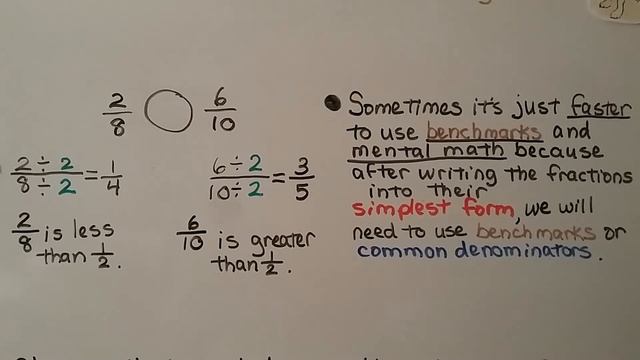 2/8 ◯ 6/10
2 ÷ 2 / 8 ÷ 2 = 1/4
6 ÷ 2 / 10 ÷ 2 = 3/5
2/8 is less
than 1/2.
6/10 is greater
than 1/2.
• Sometimes it's just faster
to use benchmarks and
mental math because
after writing the fractions
into their
simplest form, we will
need to use benchmarks or
common denominators.